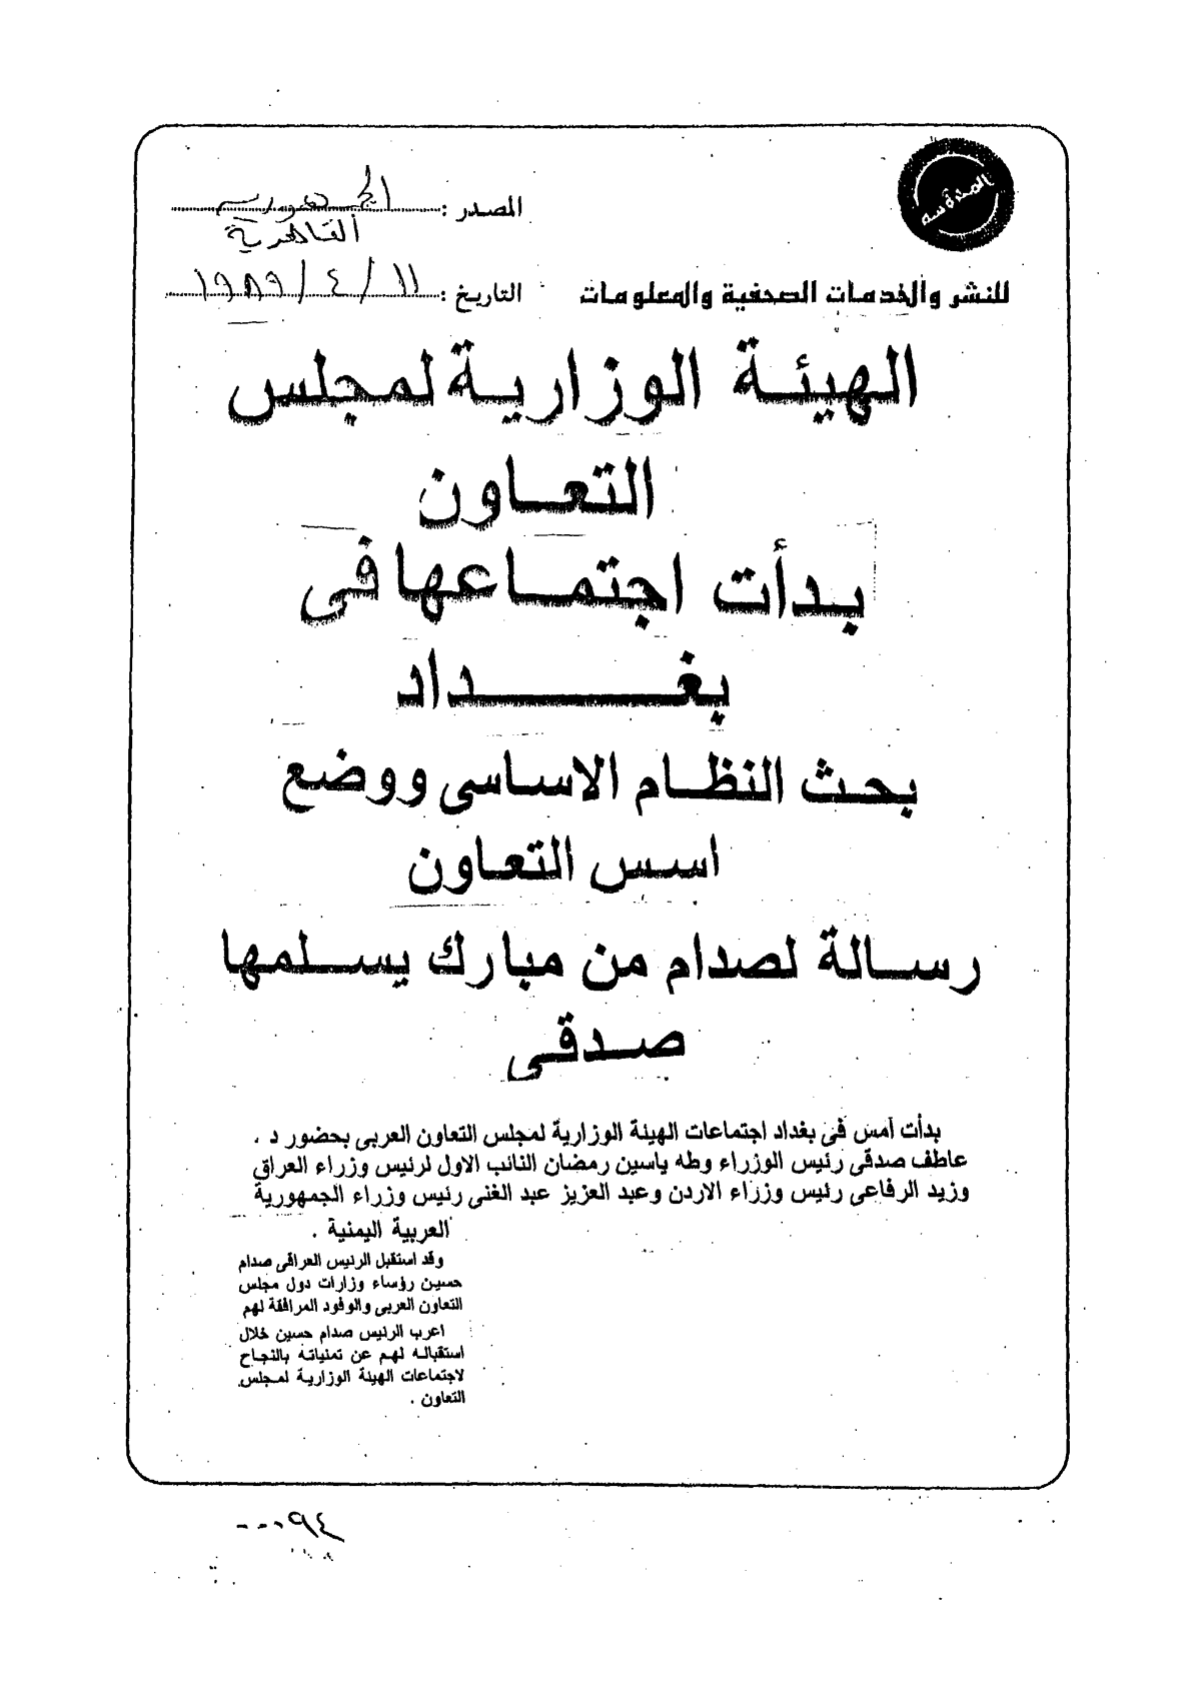 المصدر : الجمهورية
القاهرية
للنشر والخدمات الصحفية والمعلومات
التاريخ : ١١ / ٤ / ١٩٨٩
الهيئة الوزارية لمجلس
التعاون
بدأت اجتماعها فى
بغداد
بحث النظام الاساسى ووضع
اسس التعاون
رسالة لصدام من مبارك يسلمها
صدقى
بدأت أمس فى بغداد اجتماعات الهيئة الوزارية لمجلس التعاون العربى بحضور د .
عاطف صدقى رئيس الوزراء وطه ياسين رمضان النائب الاول لرئيس وزراء العراق
وزيد الرفاعى رئيس وزراء الاردن وعبد العزيز عبد الغنى رئيس وزراء الجمهورية
العربية اليمنية .
وقد استقبل الرئيس العراقى صدام
حسين رؤساء وزارات دول مجلس
التعاون العربى والوفود المرافقة لهم
اعرب الرئيس صدام حسين خلال
استقباله لهم عن تمنياته بالنجاح
لاجتماعات الهيئة الوزارية لمجلس
التعاون .
٠٠٠٩٤